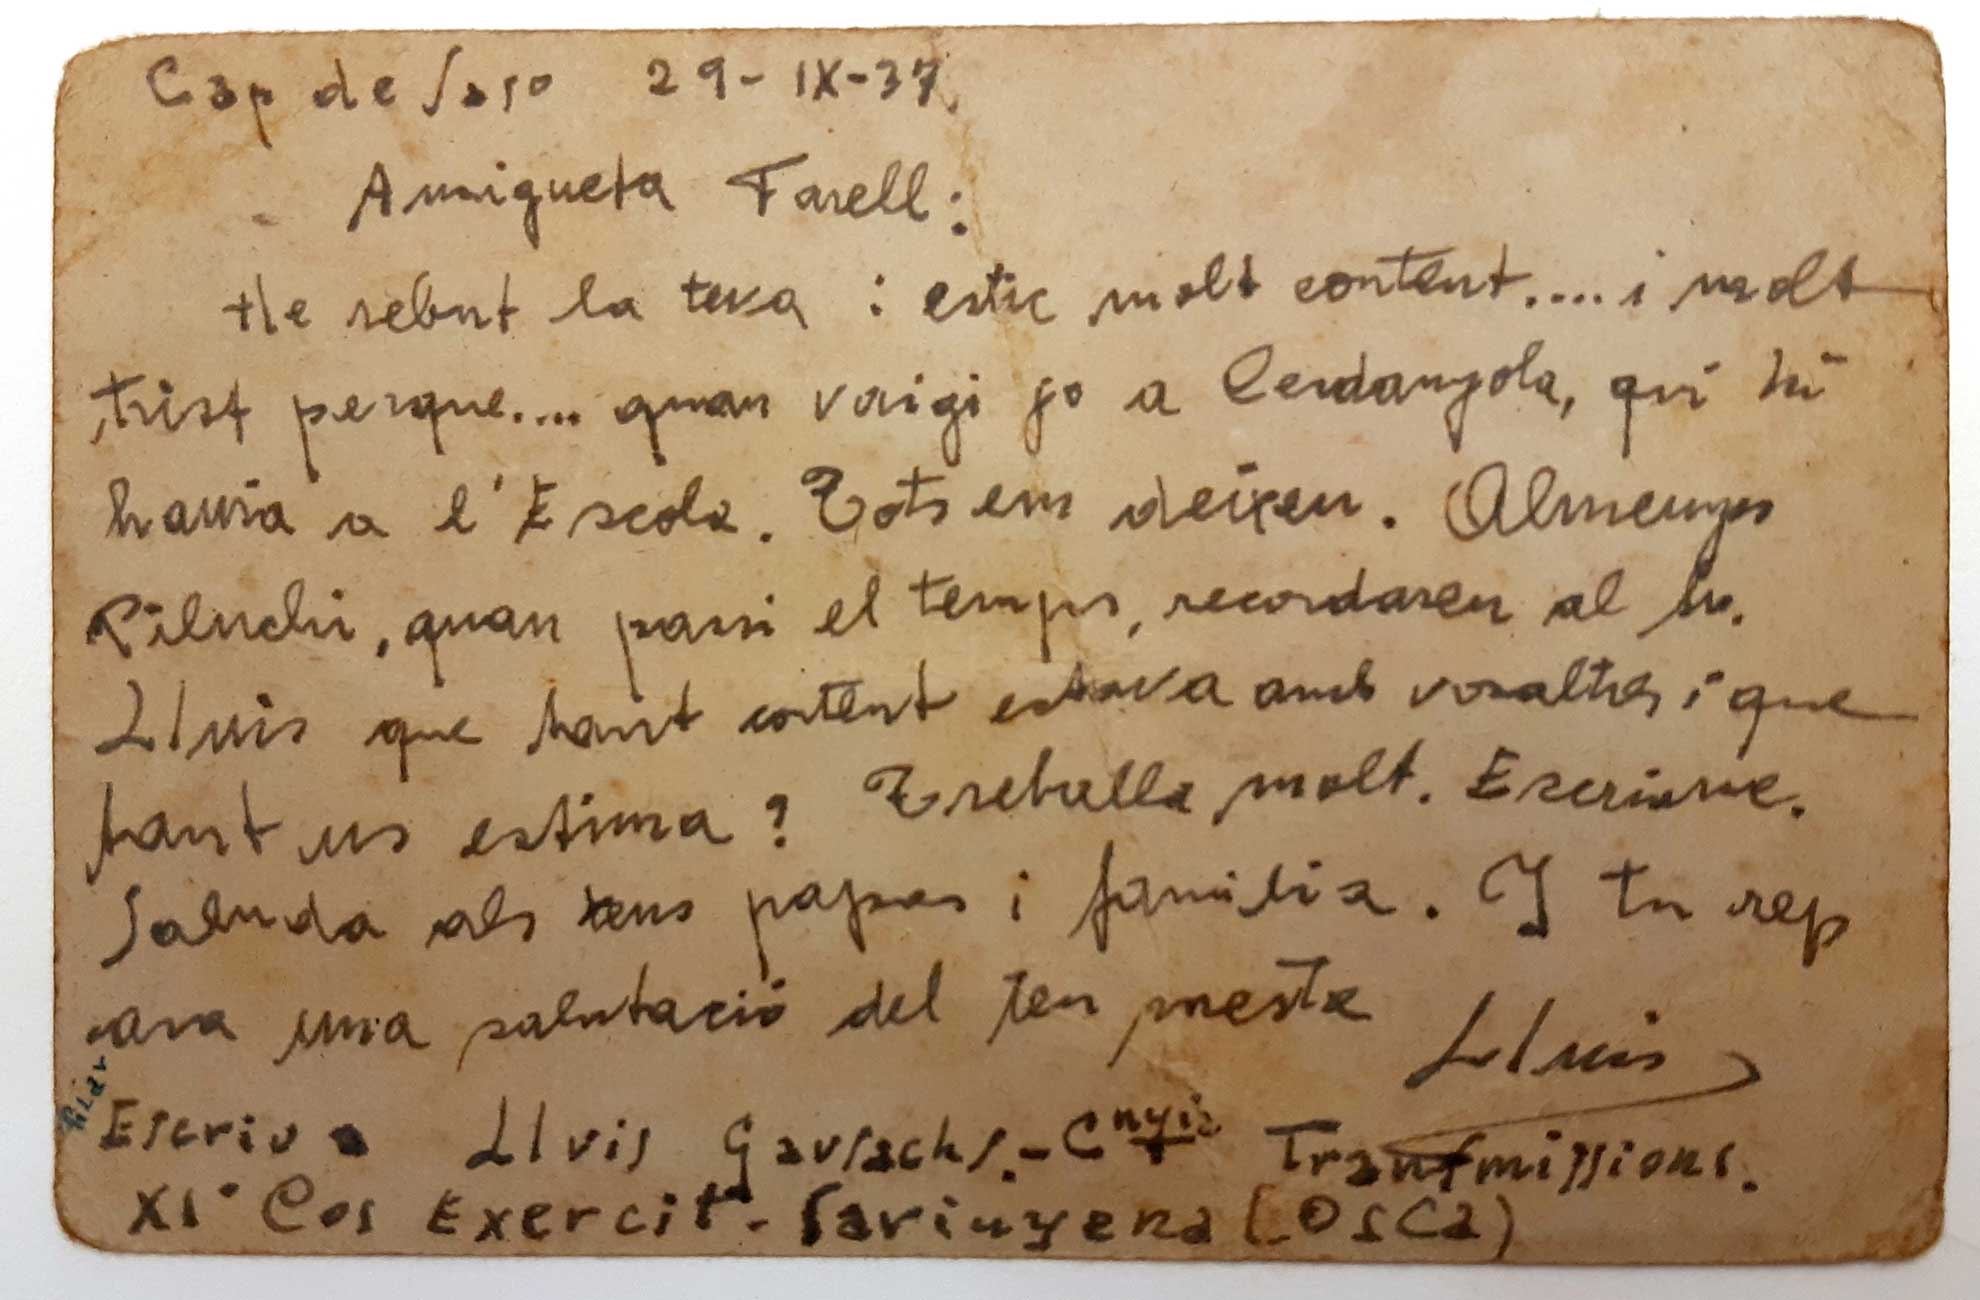 Cap de Saso 29-IX-37.
Amigueta Farell:
He rebut la teva i estic molt content.... i molt
trist perque.... quan vaigi jo a Cerdanyola, qui hi
haurà a l'Escola. Tots em deixen. Almenys
Piluchi, quan passi el temps, recordaren al Sr.
Lluis que tant content estava amb vosaltres i que
tant us estima? Treballa molt. Escriume.
Saluda als teus papas i familia. I tu rep
ara una salutació del teu mestre
Lluis
Pilar
Escriu a Lluis Gausachs.- Cnyia Transmissions.
XIº Cos Exercit - Sarinyena (OSCa)